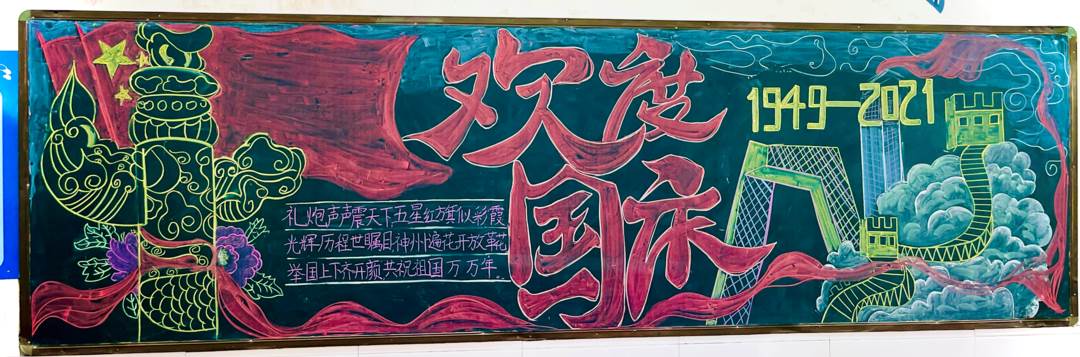 欢度
国庆
1949—2021
礼炮声声震天下五星红旗似彩霞
光辉历程世瞩目神州遍花开放革花
举国上下齐开颜共祝祖国万万年